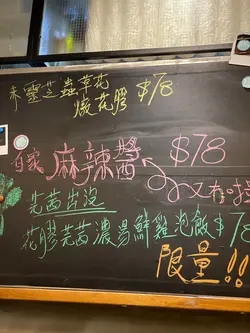 赤靈芝蟲草花
燒花膠 $78
自家麻辣醬 $78
又有啦
芫茜皮蛋
花膠芫茜濃湯鮮雞泡飯 $78
限量!!